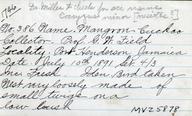 to Miller & Seele for
Coccyzus minor [
No. 386 Name. Mangrove Cuckoo
Collector Prof. G. W. Field
Locality, Port Henderson, Jamaica
Date July 10th 1891 Set 4/3
Inc. Fresh Iden. Bird taken
Nest very loosely made of
twigs on a
low bush
MVZ 5878